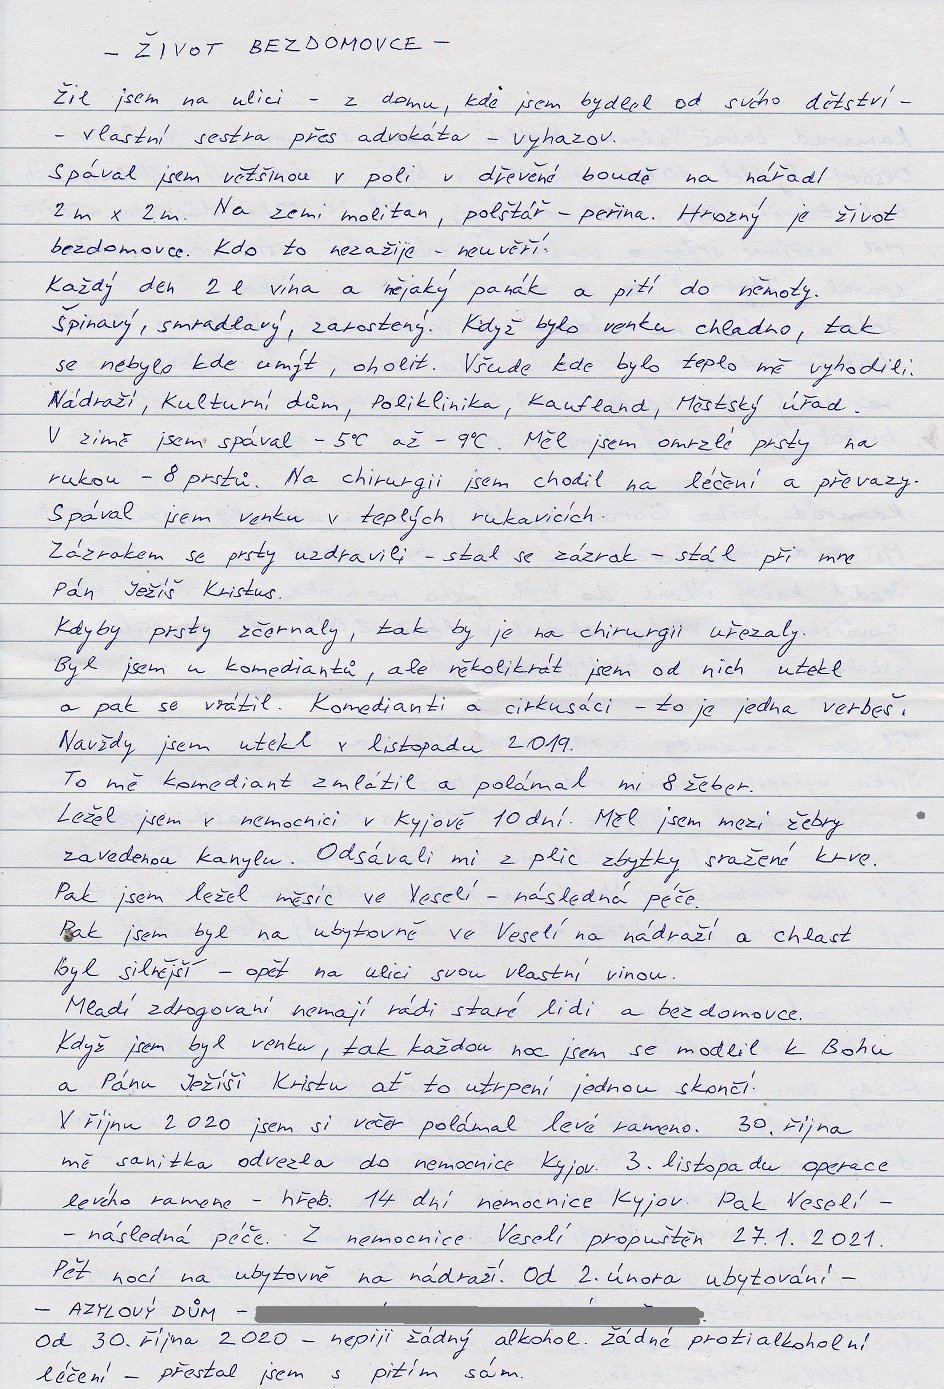 - ŽIVOT BEZDOMOVCE -
Žil jsem na ulici - z domu, kde jsem bydlel od svého dětství -
- vlastní sestra přes advokáta - vyhazov.
Spával jsem většinou v poli v dřevěné boudě na nářadí
2m x 2m. Na zemi molitan, polštář - peřina. Hrozný je život
bezdomovce. Kdo to nezažije - neuvěří.
Každý den 2 l vína a nějaký panák a pití do němoty.
Špinavý, smradlavý, zarostený. Když bylo venku chladno, tak
se nebylo kde umýt, oholit. Všude kde bylo teplo mě vyhodili.
Nádraží, Kulturní dům, Poliklinika, Kaufland, Městský úřad.
V zimě jsem spával -5°C až -9°C. Měl jsem omrzlé prsty na
rukou - 8 prstů. Na chirurgii jsem chodil na léčení a převazy.
Spával jsem venku v teplých rukavicích.
Zázrakem se prsty uzdravili - stal se zázrak - stál při mne
Pán Ježíš Kristus.
Kdyby prsty zčernaly, tak by je na chirurgii uřezaly.
Byl jsem u komediantů, ale několikrát jsem od nich utekl
a pak se vrátil. Komedianti a cirkusáci - to je jedna verbeš.
Navždy jsem utekl v listopadu 2019.
To mě komediant zmlátil a polámal mi 8 žeber.
Ležel jsem v nemocnici v Kyjově 10 dní. Měl jsem mezi žebry
zavedenou kanylu. Odsávali mi z plic zbytky sražené krve.
Pak jsem ležel měsíc ve Veselí - následná péče.
Pak jsem byl na ubytovně ve Veselí na nádraží a chlast
byl silnější - opět na ulici svou vlastní vinou.
Mladí zdrogovaní nemají rádi staré lidi a bezdomovce.
Když jsem byl venku, tak každou noc jsem se modlil k Bohu
a Pánu Ježíši Kristu ať to utrpení jednou skončí.
V říjnu 2020 jsem si večer polámal levé rameno. 30. října
mě sanitka odvezla do nemocnice Kyjov. 3. listopadu operace
levého ramene - hřeb. 14 dní nemocnice Kyjov. Pak Veselí -
- následná péče. Z nemocnice Veselí propuštěn 27.1. 2021.
Pět nocí na ubytovně na nádraží. Od 2. února ubytování -
- AZYLOVÝ DŮM -
Od 30. října 2020 - nepiji žádný alkohol. Žádné protialkoholní
léčení - přestal jsem s pitím sám.